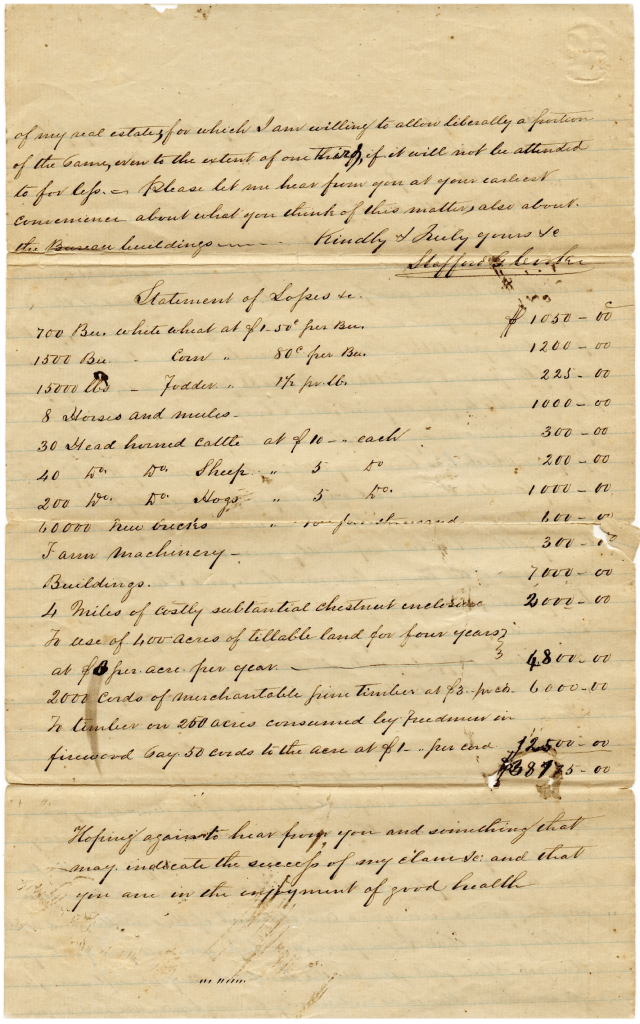 of my real estate, for which I am willing to allow liberally a portion
of the same, even to the extent of one third, if it will not be attended
to for less. — Please let me hear from you at your earliest
convenience about what you think of this matter, also about
the Bureau buildings —— Kindly & Truly yours &c
Stafford G. Cooke
Statement of Losses &c.
700 Bu. white wheat at $1.50c per Bu. $1050-00
1500 Bu " Corn " 80c per Bu. 1200-00
15000 lbs — Fodder " 1½ pr. lb. 225-00
8 Horses and mules — 1000-00
30 Head horned Cattle at $10 — " each 300-00
40 Do. Do. Sheep " 5 Do 200-00
200 Do. Do. Hogs " 5 Do. 1000-00
60000 new bricks " 10 — per thousand 600-00
Farm Machinery — 300-00
Buildings. 7000-00
4 Miles of costly substantial chestnut enclosure 2000-00
To use of 400 acres of tillable land for four years
at $3 per acre per year. —— 4800-00
2000 Cords of merchantable pine timber at $3 — pr ch 6000-00
To timber on 250 acres consumed by Freedmen in
firewood Say 50 cords to the acre at $1 — " per cord 12500-00
$38175-00
Hoping again to hear from you and something that
may indicate the success of my claim &c: and that
you are in the enjoyment of good health